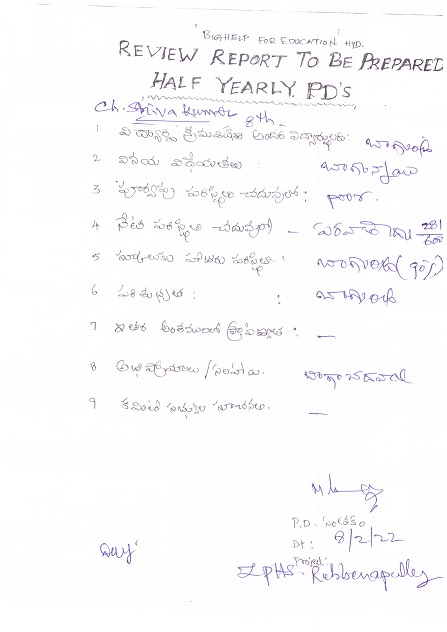 'BIGHELP FOR EDUCATION' HYD.
REVIEW REPORT TO BE PREPARED
HALF YEARLY PD'S
Ch. Shiva Kumar 8th
1 విద్యార్థి క్రమశిక్షణ బాగుంది
2 వినయ విధేయతలు: బాగున్నాయి
3 పూర్వపు పరిస్థితి చదువులో: poor.
4 నేటి పరిస్థితి చదువులో - పరవాలేదు 281/600
5 స్కూలుకు హాజరు పరిస్థితి: బాగుంది (90%)
6 పరిశుభ్రత: : బాగుంది
7 ఇతర అంశములలో ప్రావీణ్యత: —
8 అభిప్రాయాలు/సలహా. బాగా చదవాలి
9 కమిటి సభ్యుల సూచనలు. —
P.D. సంతకం
Dt: 8/2/22
Project:
ZPHS- Rebbenapalley